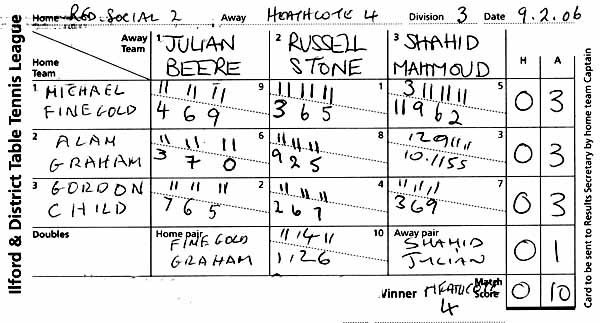 Ilford & District Table Tennis League
Home RED. SOCIAL 2 Away HEATHCOTE 4 Division 3 Date 9.2.06
Away Team
Home Team
1 JULIAN BEERE
2 RUSSELL STONE
3 SHAHID MAHMOUD
H A
1 MICHAEL FINEGOLD
11 11 11 9
4 6 9
11 11 11 1
3 6 5
3 11 11 11 5
11 9 6 2
0 3
2 ALAN GRAHAM
11 11 11 6
3 7 0
11 11 11 8
9 2 5
12 9 11 11 3
10 11 5 5
0 3
3 GORDON CHILD
11 11 11 2
7 6 5
11 11 11 4
2 6 7
11 11 11 7
3 6 9
0 3
Doubles
Home pair
FINEGOLD
GRAHAM
11 14 11 10
1 12 6
Away pair
SHAHID
JULIAN
0 1
Winner HEATHCOTE 4
Match Score 0 10
Card to be sent to Results Secretary by home team Captain